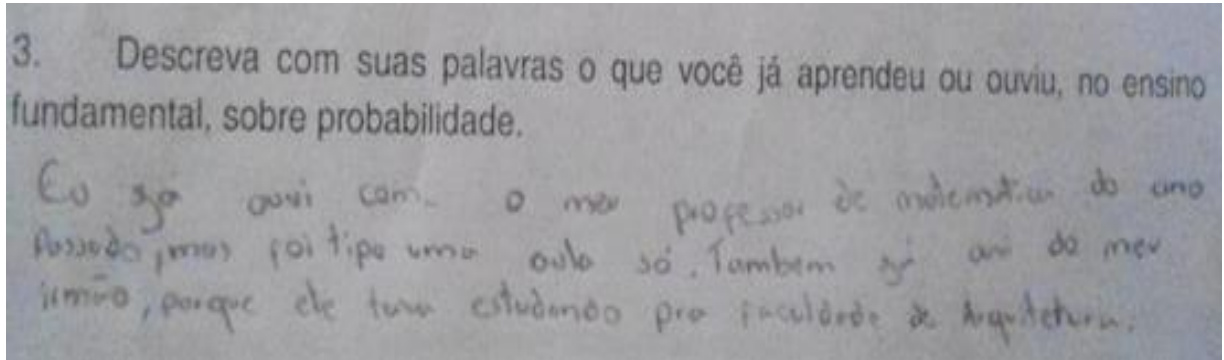 3. Descreva com suas palavras o que você já aprendeu ou ouviu, no ensino
fundamental, sobre probabilidade.
Eu já ouvi com o meu professor de matematica do ano
Passado, mas foi tipo uma aula só. Tambem já ouvi do meu
irmão, porque ele tava estudando pra faculdade de Arquitetura.